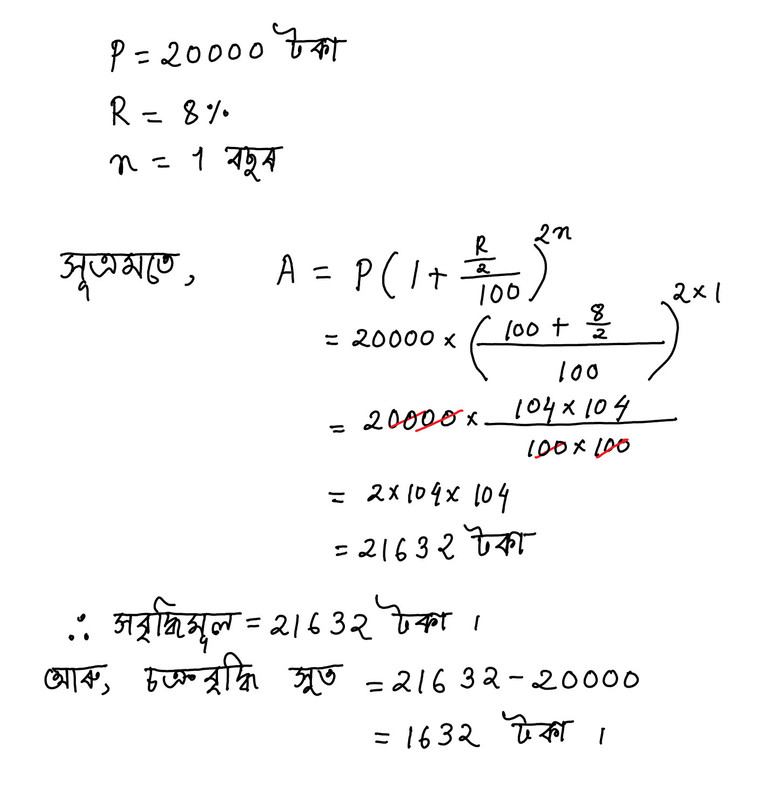 P = 20000 টকা
R = 8%
n = 1 বছৰ
সূত্ৰমতে, A = P(1 + (R/2)/100)^2n
= 20000 × ((100 + 8/2)/100)^2×1
= 20000 × (104 × 104)/(100 × 100)
= 2 × 104 × 104
= 21632 টকা
∴ সবৃদ্ধিমূল = 21632 টকা ।
আৰু, চক্ৰবৃদ্ধি সুত = 21632 - 20000
= 1632 টকা ।